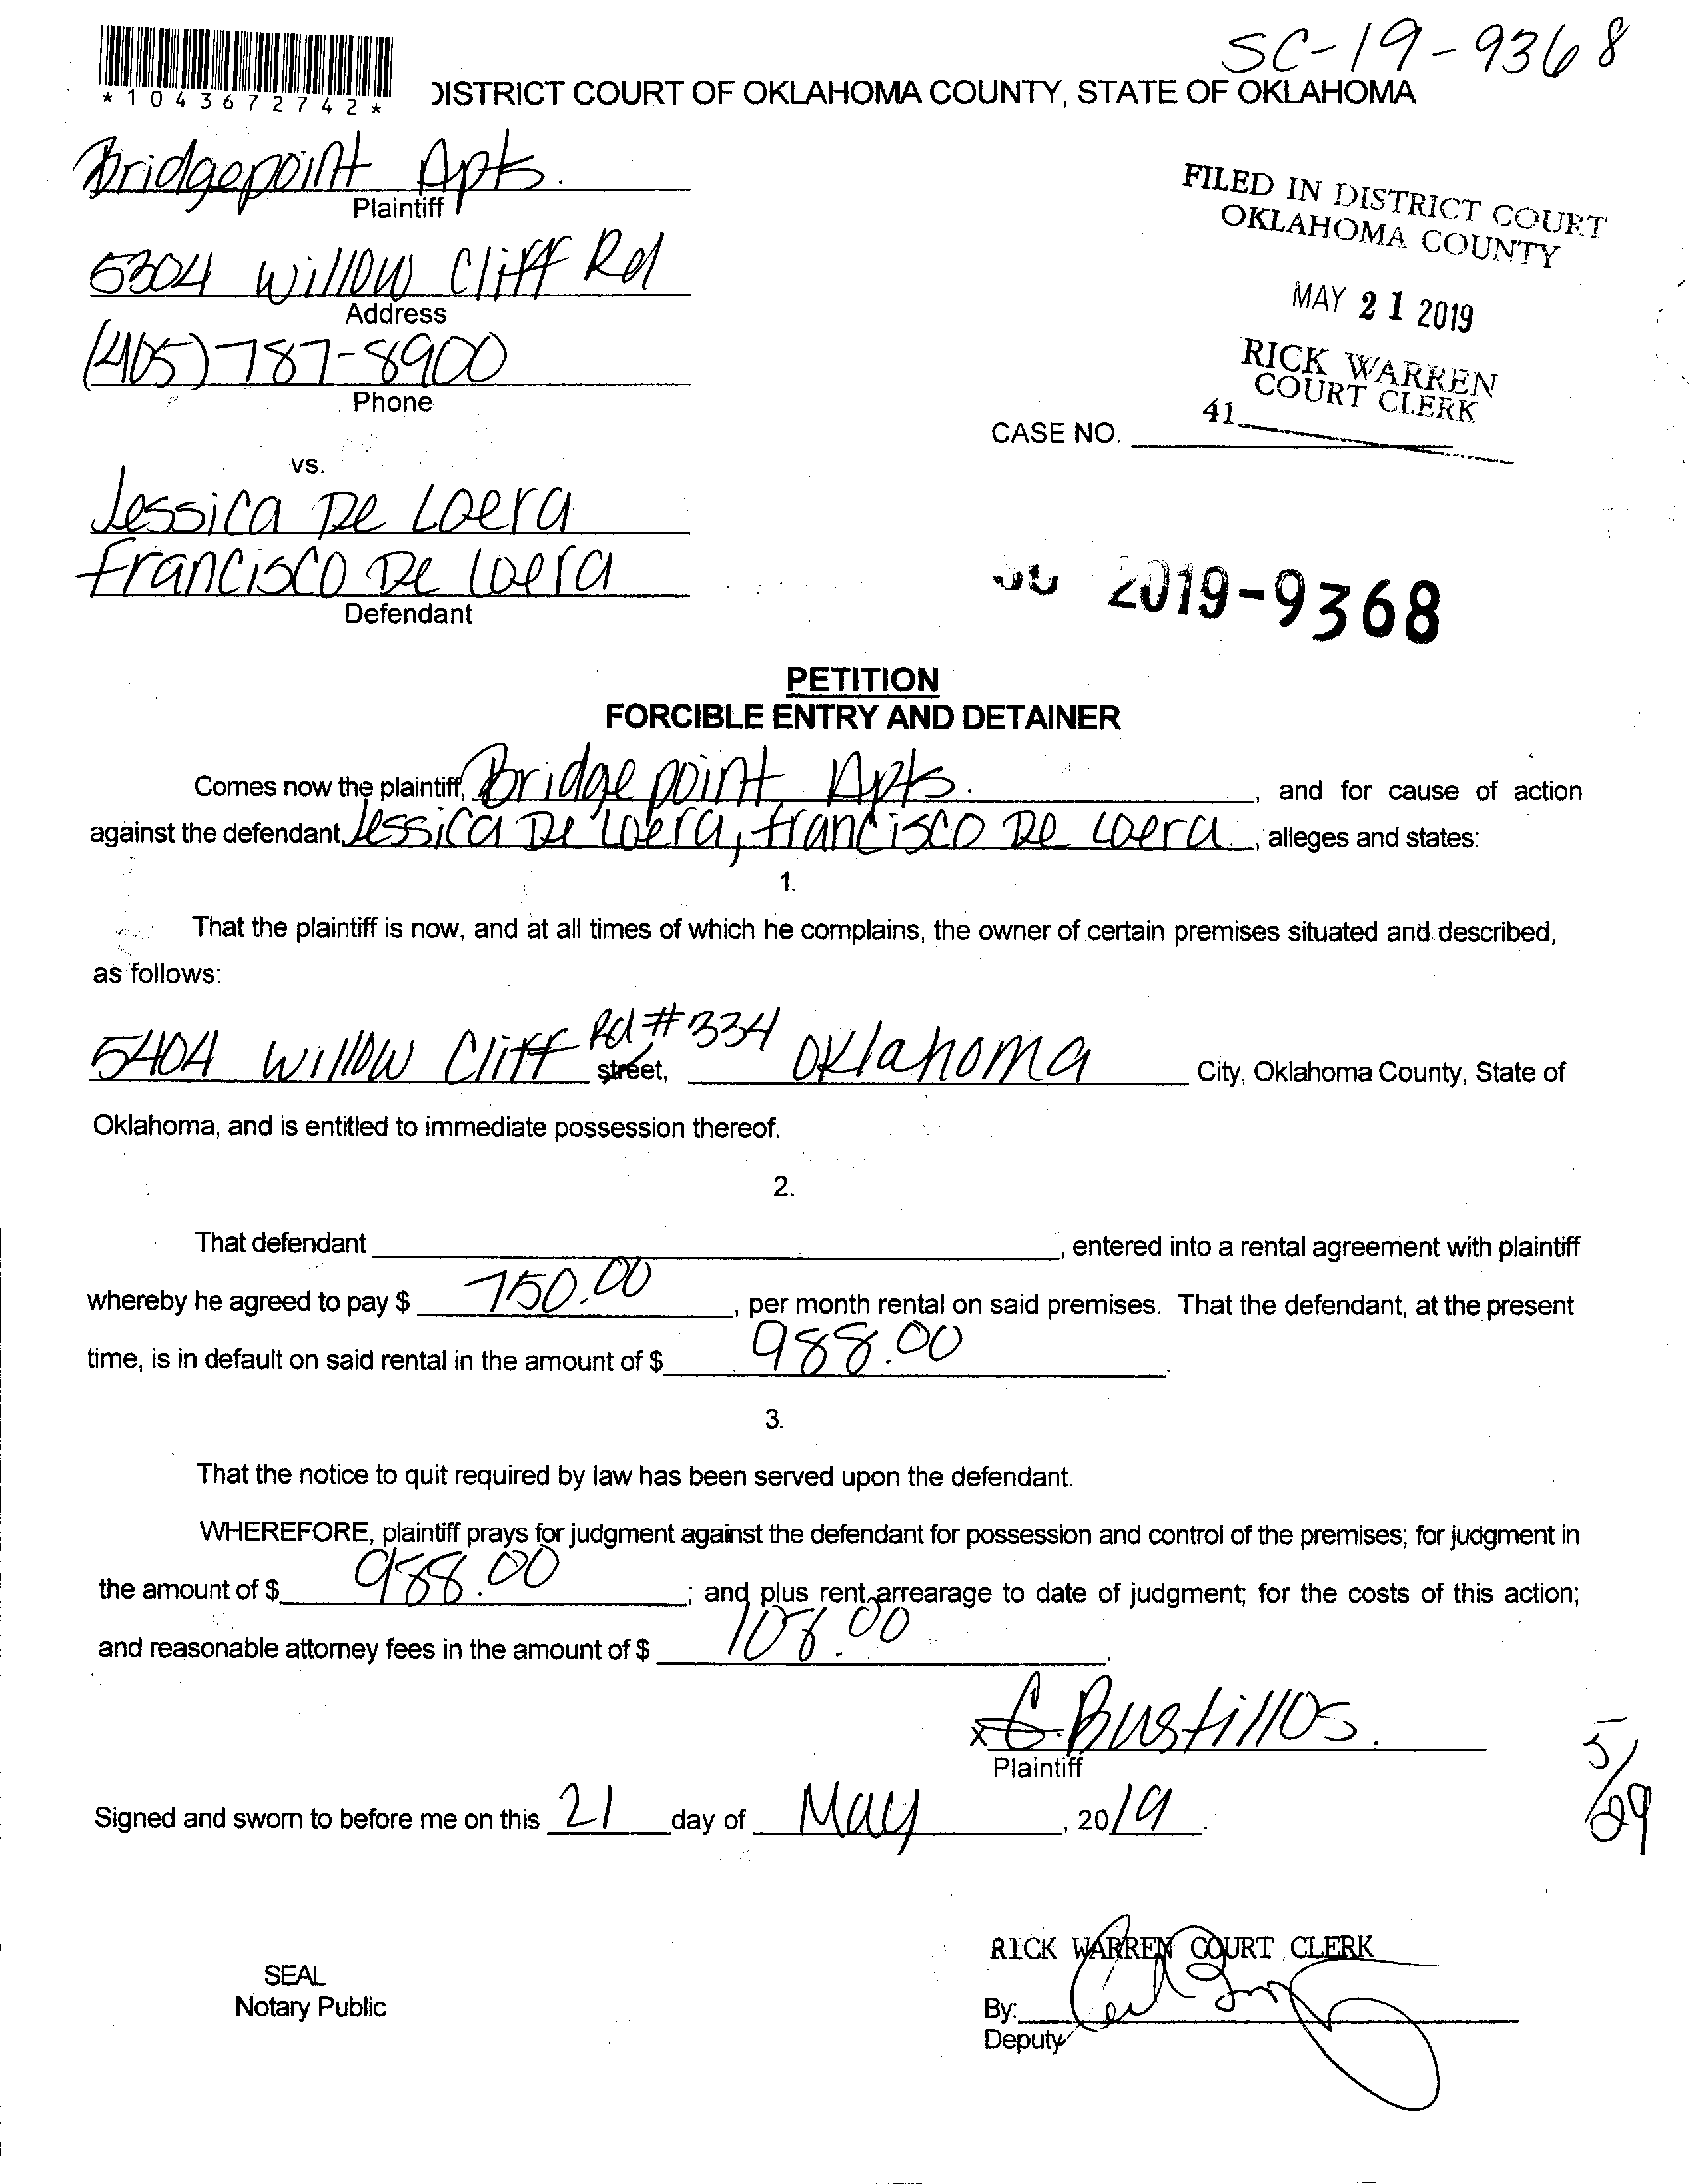 SC-19-9368
*1043672742*
DISTRICT COURT OF OKLAHOMA COUNTY, STATE OF OKLAHOMA
Bridgepoint Apts.
Plaintiff
5304 Willow Cliff Rd
Address
(405) 787-8900
Phone
FILED IN DISTRICT COURT
OKLAHOMA COUNTY
MAY 21 2019
RICK WARREN
COURT CLERK
41
CASE NO.
vs.
Jessica De Loera
Francisco De Loera
Defendant
2019-9368
PETITION
FORCIBLE ENTRY AND DETAINER
Comes now the plaintiff, Bridgepoint Apts. , and for cause of action
against the defendant, Jessica De Loera, Francisco De Loera , alleges and states:
1.
That the plaintiff is now, and at all times of which he complains, the owner of certain premises situated and described,
as follows:
5404 Willow Cliff Rd #334 street, Oklahoma City, Oklahoma County, State of
Oklahoma, and is entitled to immediate possession thereof.
2.
That defendant , entered into a rental agreement with plaintiff
whereby he agreed to pay $ 750.00 , per month rental on said premises. That the defendant, at the present
time, is in default on said rental in the amount of $ 988.00 .
3.
That the notice to quit required by law has been served upon the defendant.
WHEREFORE, plaintiff prays for judgment against the defendant for possession and control of the premises; for judgment in
the amount of $ 988.00 ; and plus rent arrearage to date of judgment; for the costs of this action;
and reasonable attorney fees in the amount of $ 108.00 .
x G. Bustillos.
Plaintiff
5/29
Signed and sworn to before me on this 21 day of May , 2019 .
RICK WARREN COURT CLERK
SEAL
Notary Public
By:
Deputy